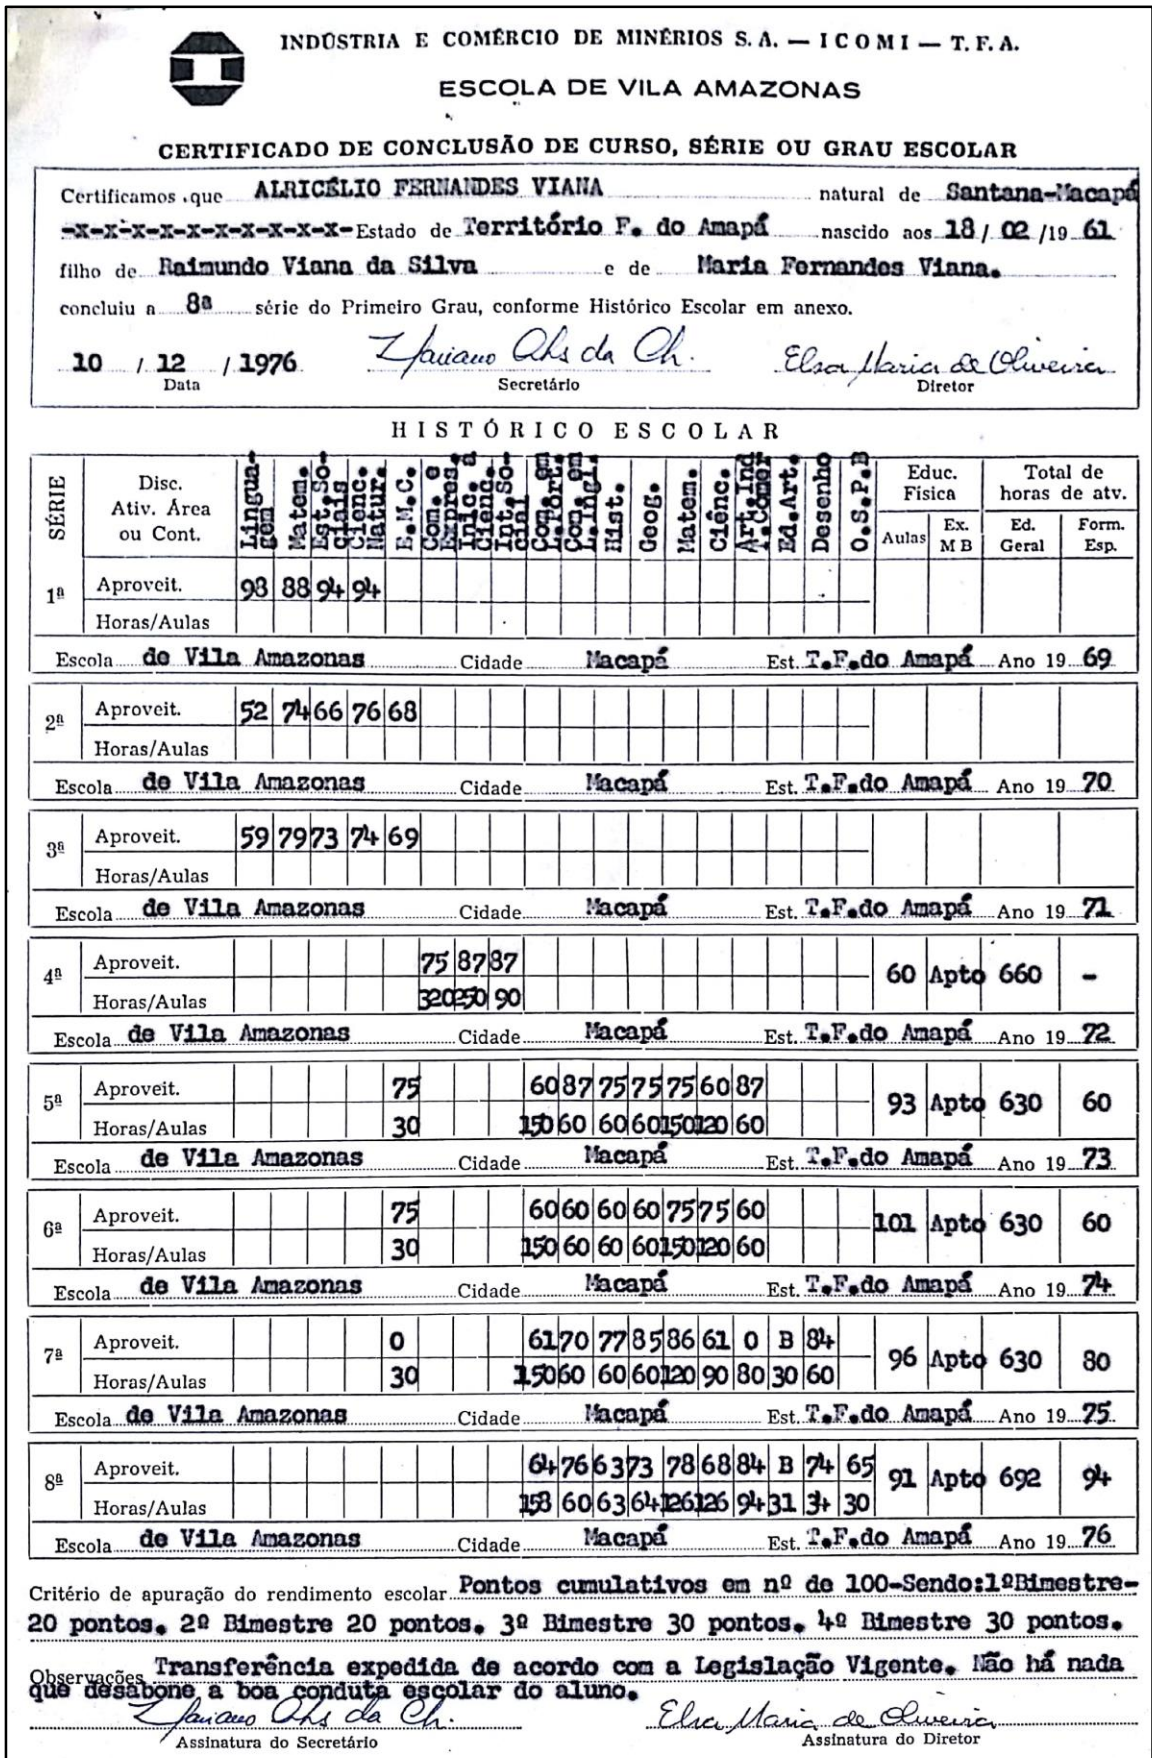 INDÚSTRIA E COMÉRCIO DE MINÉRIOS S. A. — I C O M I — T. F. A.
ESCOLA DE VILA AMAZONAS
CERTIFICADO DE CONCLUSÃO DE CURSO, SÉRIE OU GRAU ESCOLAR
Certificamos que ALRICÉLIO FERNANDES VIANA natural de Santana-Macapá
-x-x-x-x-x-x-x-x-x-x- Estado de Território F. do Amapá nascido aos 18/ 02 /19 61
filho de Raimundo Viana da Silva e de Maria Fernandes Viana.
concluiu a 8ª série do Primeiro Grau, conforme Histórico Escolar em anexo.
10 / 12 / 1976
Elsa Maria de Oliveira
Data Secretário Diretor
HISTÓRICO ESCOLAR
SÉRIE Disc. Ativ. Área ou Cont. Linguagem Matem. Est. Sociais Cienc. Natur. E.M.C. Com. e Expres. Inic. a Cienc. Int. Social Com. em L.Port. Com. em L.Ingl. Hist. Geog. Matem. Ciênc. Art.Ind Ed.Art. Desenho O.S.P.B Educ. Física Aulas Ex. M B Total de horas de atv. Ed. Geral Form. Esp.
1ª Aproveit. 93 88 94 94
Horas/Aulas
Escola de Vila Amazonas Cidade Macapá Est. T.F.do Amapá Ano 19 69
2ª Aproveit. 52 74 66 76 68
Horas/Aulas
Escola de Vila Amazonas Cidade Macapá Est. T.F.do Amapá Ano 19 70
3ª Aproveit. 59 79 73 74 69
Horas/Aulas
Escola de Vila Amazonas Cidade Macapá Est. T.F.do Amapá Ano 19 71
4ª Aproveit. 75 87 87 60 Apto 660 -
Horas/Aulas 320 250 90
Escola de Vila Amazonas Cidade Macapá Est. T.F.do Amapá Ano 19 72
5ª Aproveit. 75 60 87 75 75 75 60 87 93 Apto 630 60
Horas/Aulas 30 150 60 60 60 150 120 60
Escola de Vila Amazonas Cidade Macapá Est. T.F.do Amapá Ano 19 73
6ª Aproveit. 75 60 60 60 60 75 75 60 101 Apto 630 60
Horas/Aulas 30 150 60 60 60 150 120 60
Escola de Vila Amazonas Cidade Macapá Est. T.F.do Amapá Ano 19 74
7ª Aproveit. 0 61 70 77 85 86 61 0 B 84 96 Apto 630 80
Horas/Aulas 30 150 60 60 60 120 90 80 30 60
Escola de Vila Amazonas Cidade Macapá Est. T.F.do Amapá Ano 19 75
8ª Aproveit. 64 76 63 73 78 68 84 B 74 65 91 Apto 692 94
Horas/Aulas 158 60 63 64 126 126 94 31 34 30
Escola de Vila Amazonas Cidade Macapá Est. T.F.do Amapá Ano 19 76
Critério de apuração do rendimento escolar Pontos cumulativos em nº de 100-Sendo:1ºBimestre-
20 pontos. 2º Bimestre 20 pontos. 3º Bimestre 30 pontos. 4º Bimestre 30 pontos.
Observações Transferência expedida de acordo com a Legislação Vigente. Não há nada
que desabone a boa conduta escolar do aluno.
Elsa Maria de Oliveira
Assinatura do Secretário Assinatura do Diretor